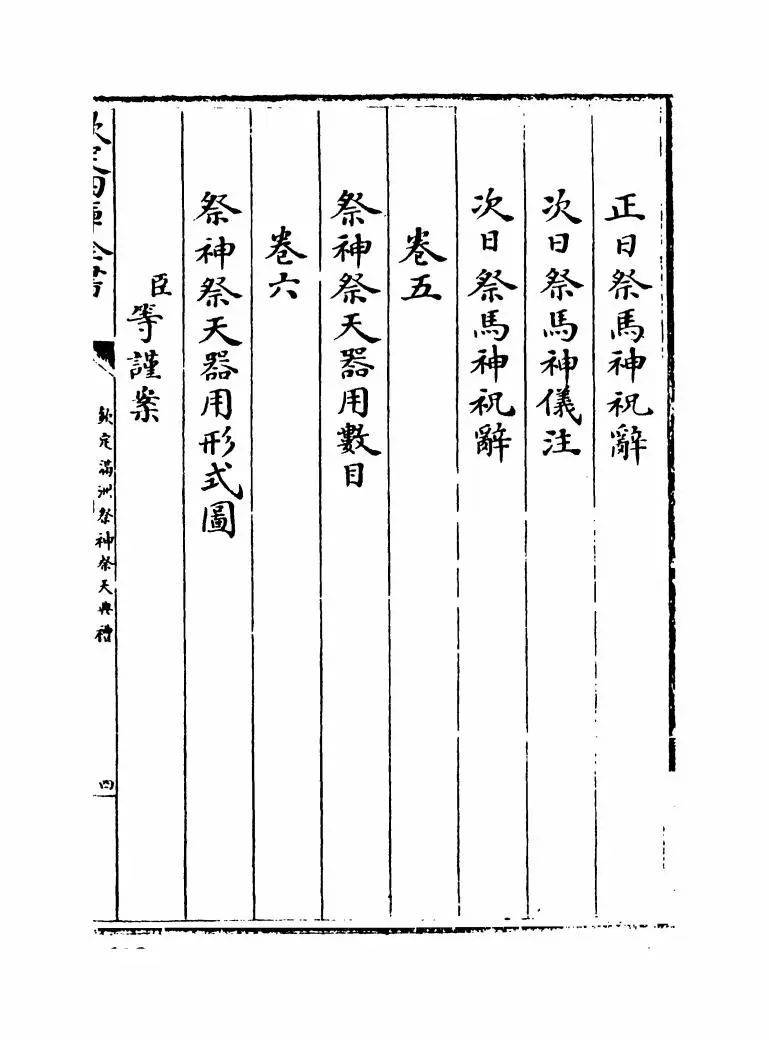 正日祭馬神祝辭
次日祭馬神儀注
次日祭馬神祝辭
卷五
祭神祭天器用數目
卷六
祭神祭天器用形式圖
臣等謹案
欽定四庫全書
欽定滿洲祭神祭天典禮
四